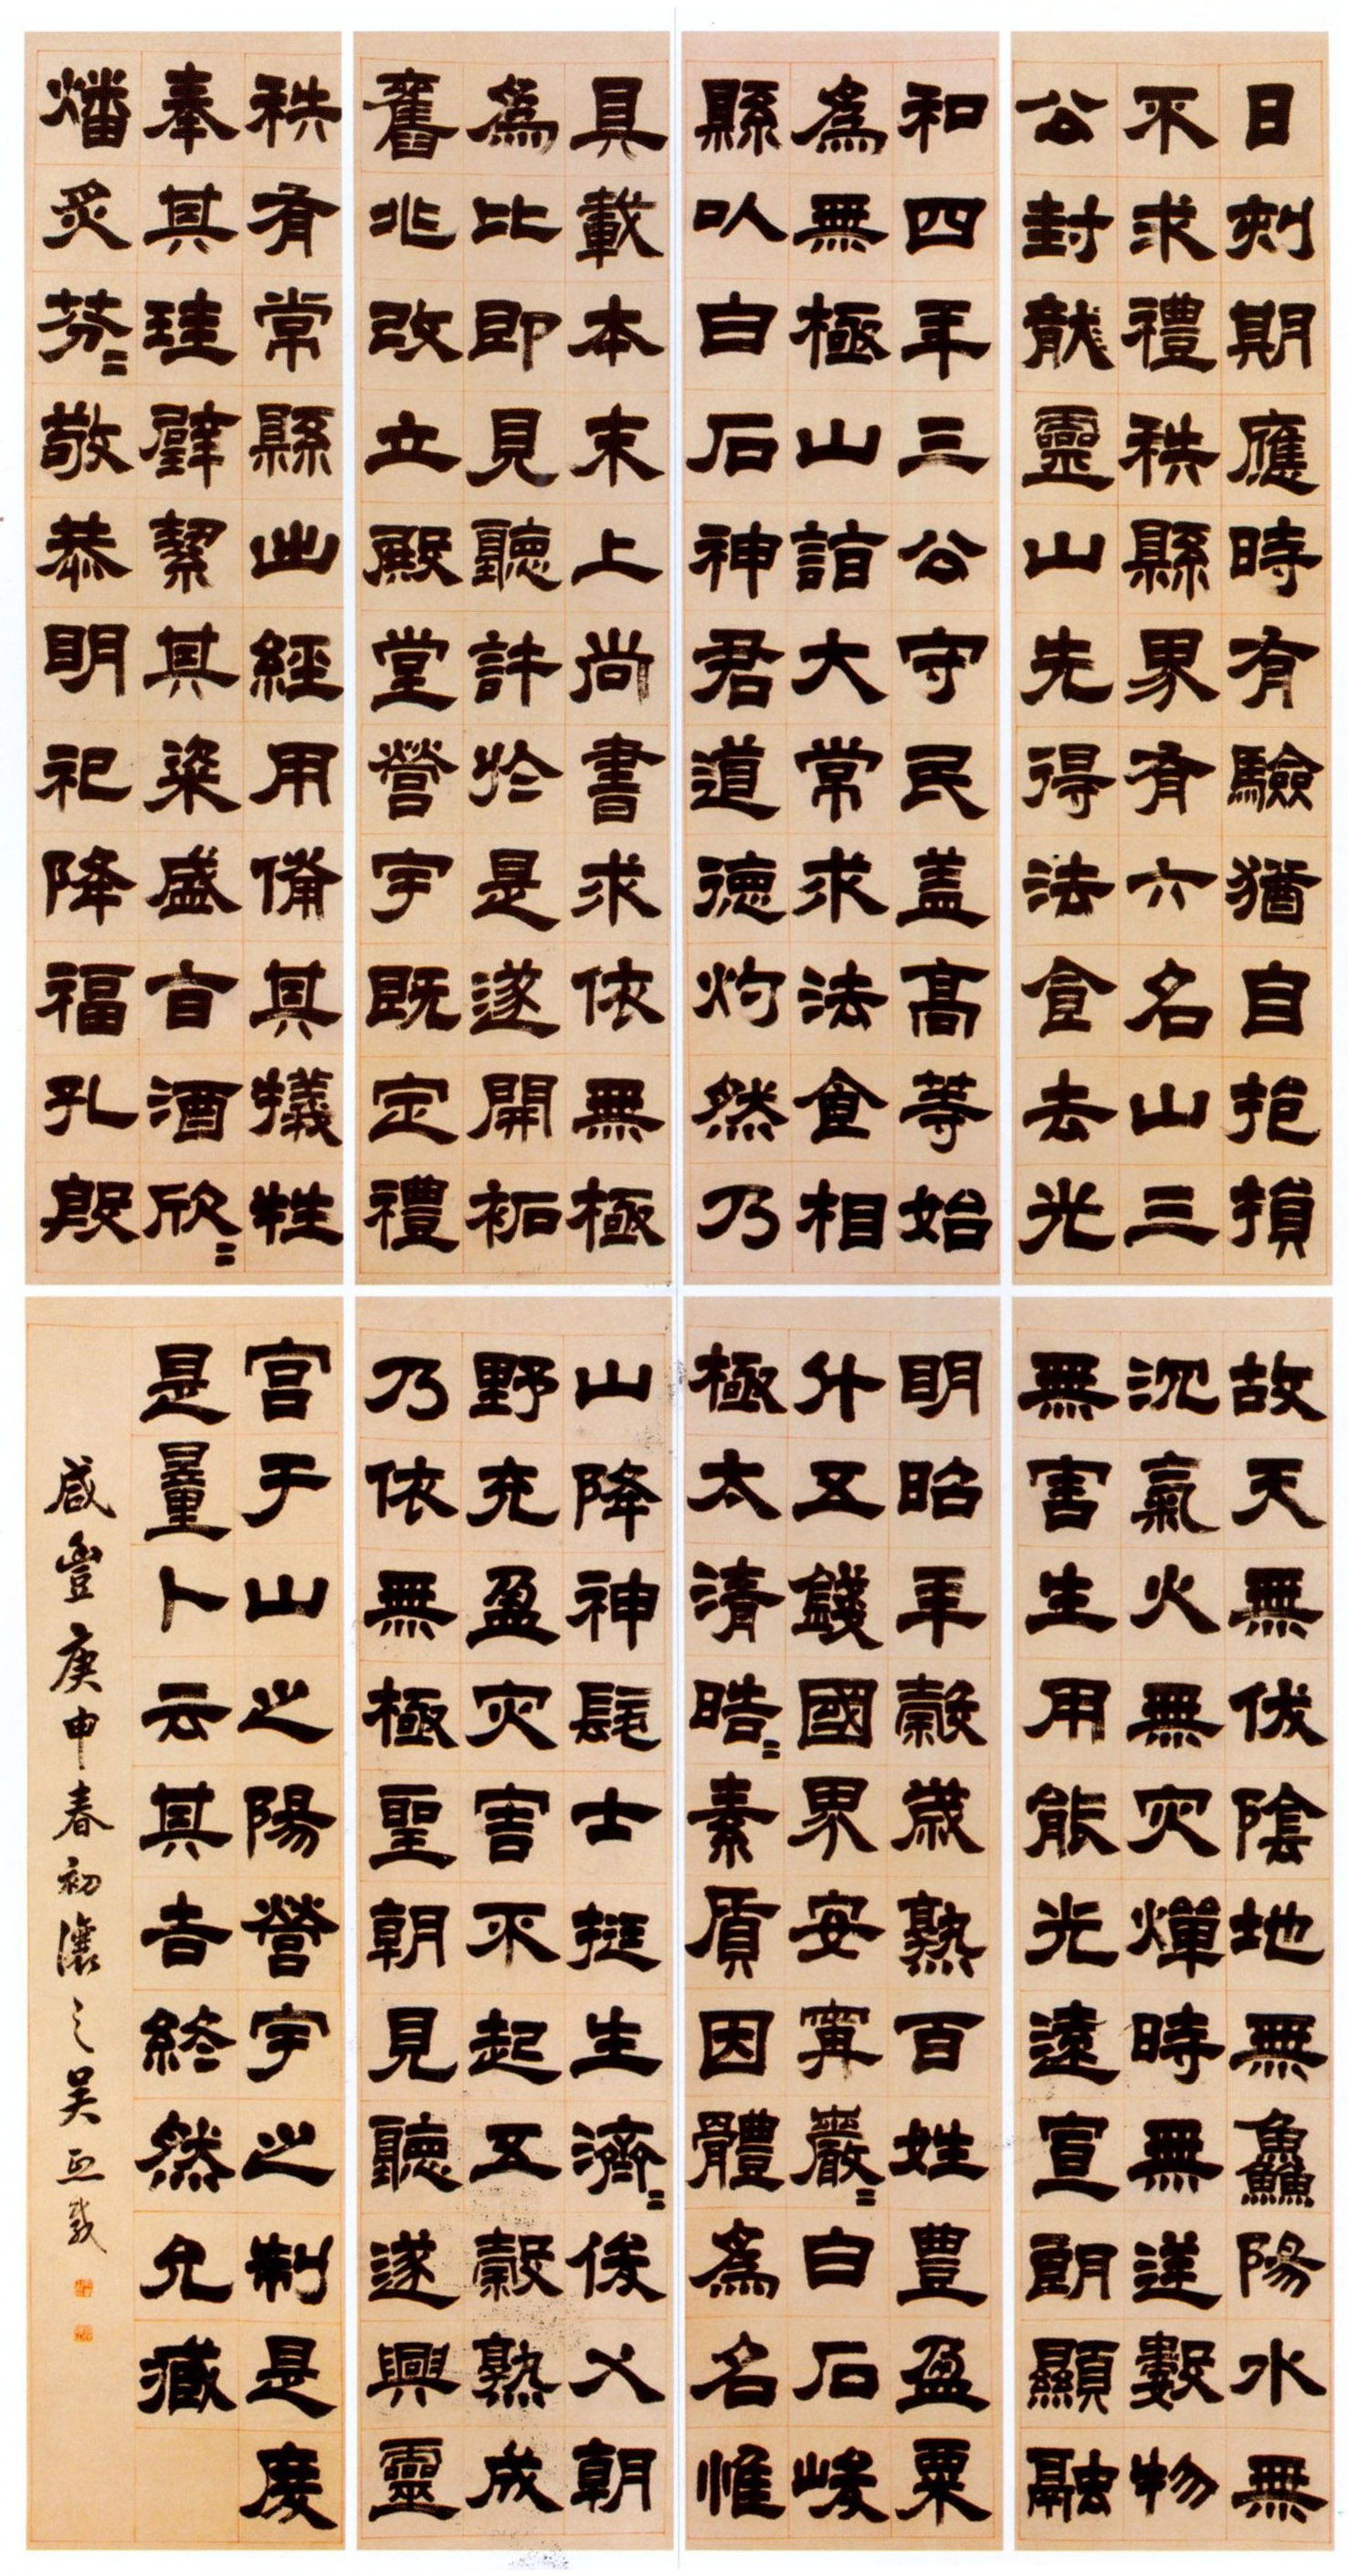 日刻期應時有驗猶自抱損
不求禮秩縣界有六名山三
公封龍靈山先得法食去光
和四年三公守民蓋高等始
為無極山詣大常求法食相
縣以白石神君道德灼然乃
具載本末上尚書求依無極
為比即見聽許於是遂開祏
舊兆改立殿堂營宇既定禮
秩有常縣出經用備其犧牲
奉其珪璧絜其粢盛旨酒欣=
燔炙芬=敬恭明祀降福孔殷
故天無伏陰地無鱻陽水無
沉氣火無災燀時無逆數物
無害生用能光遠宣朗顯融
明昭年穀歲熟百姓豐盈粟
升五錢國界安寧巖=白石峻
極太清晧=素質因體為名惟
山降神髦士挺生濟=俊乂朝
野充盈災害不起五穀熟成
乃依無極聖朝見聽遂興靈
宮于山之陽營宇之制是度
是量卜云其吉終然允臧
咸豐庚申春初讓之吳熙載